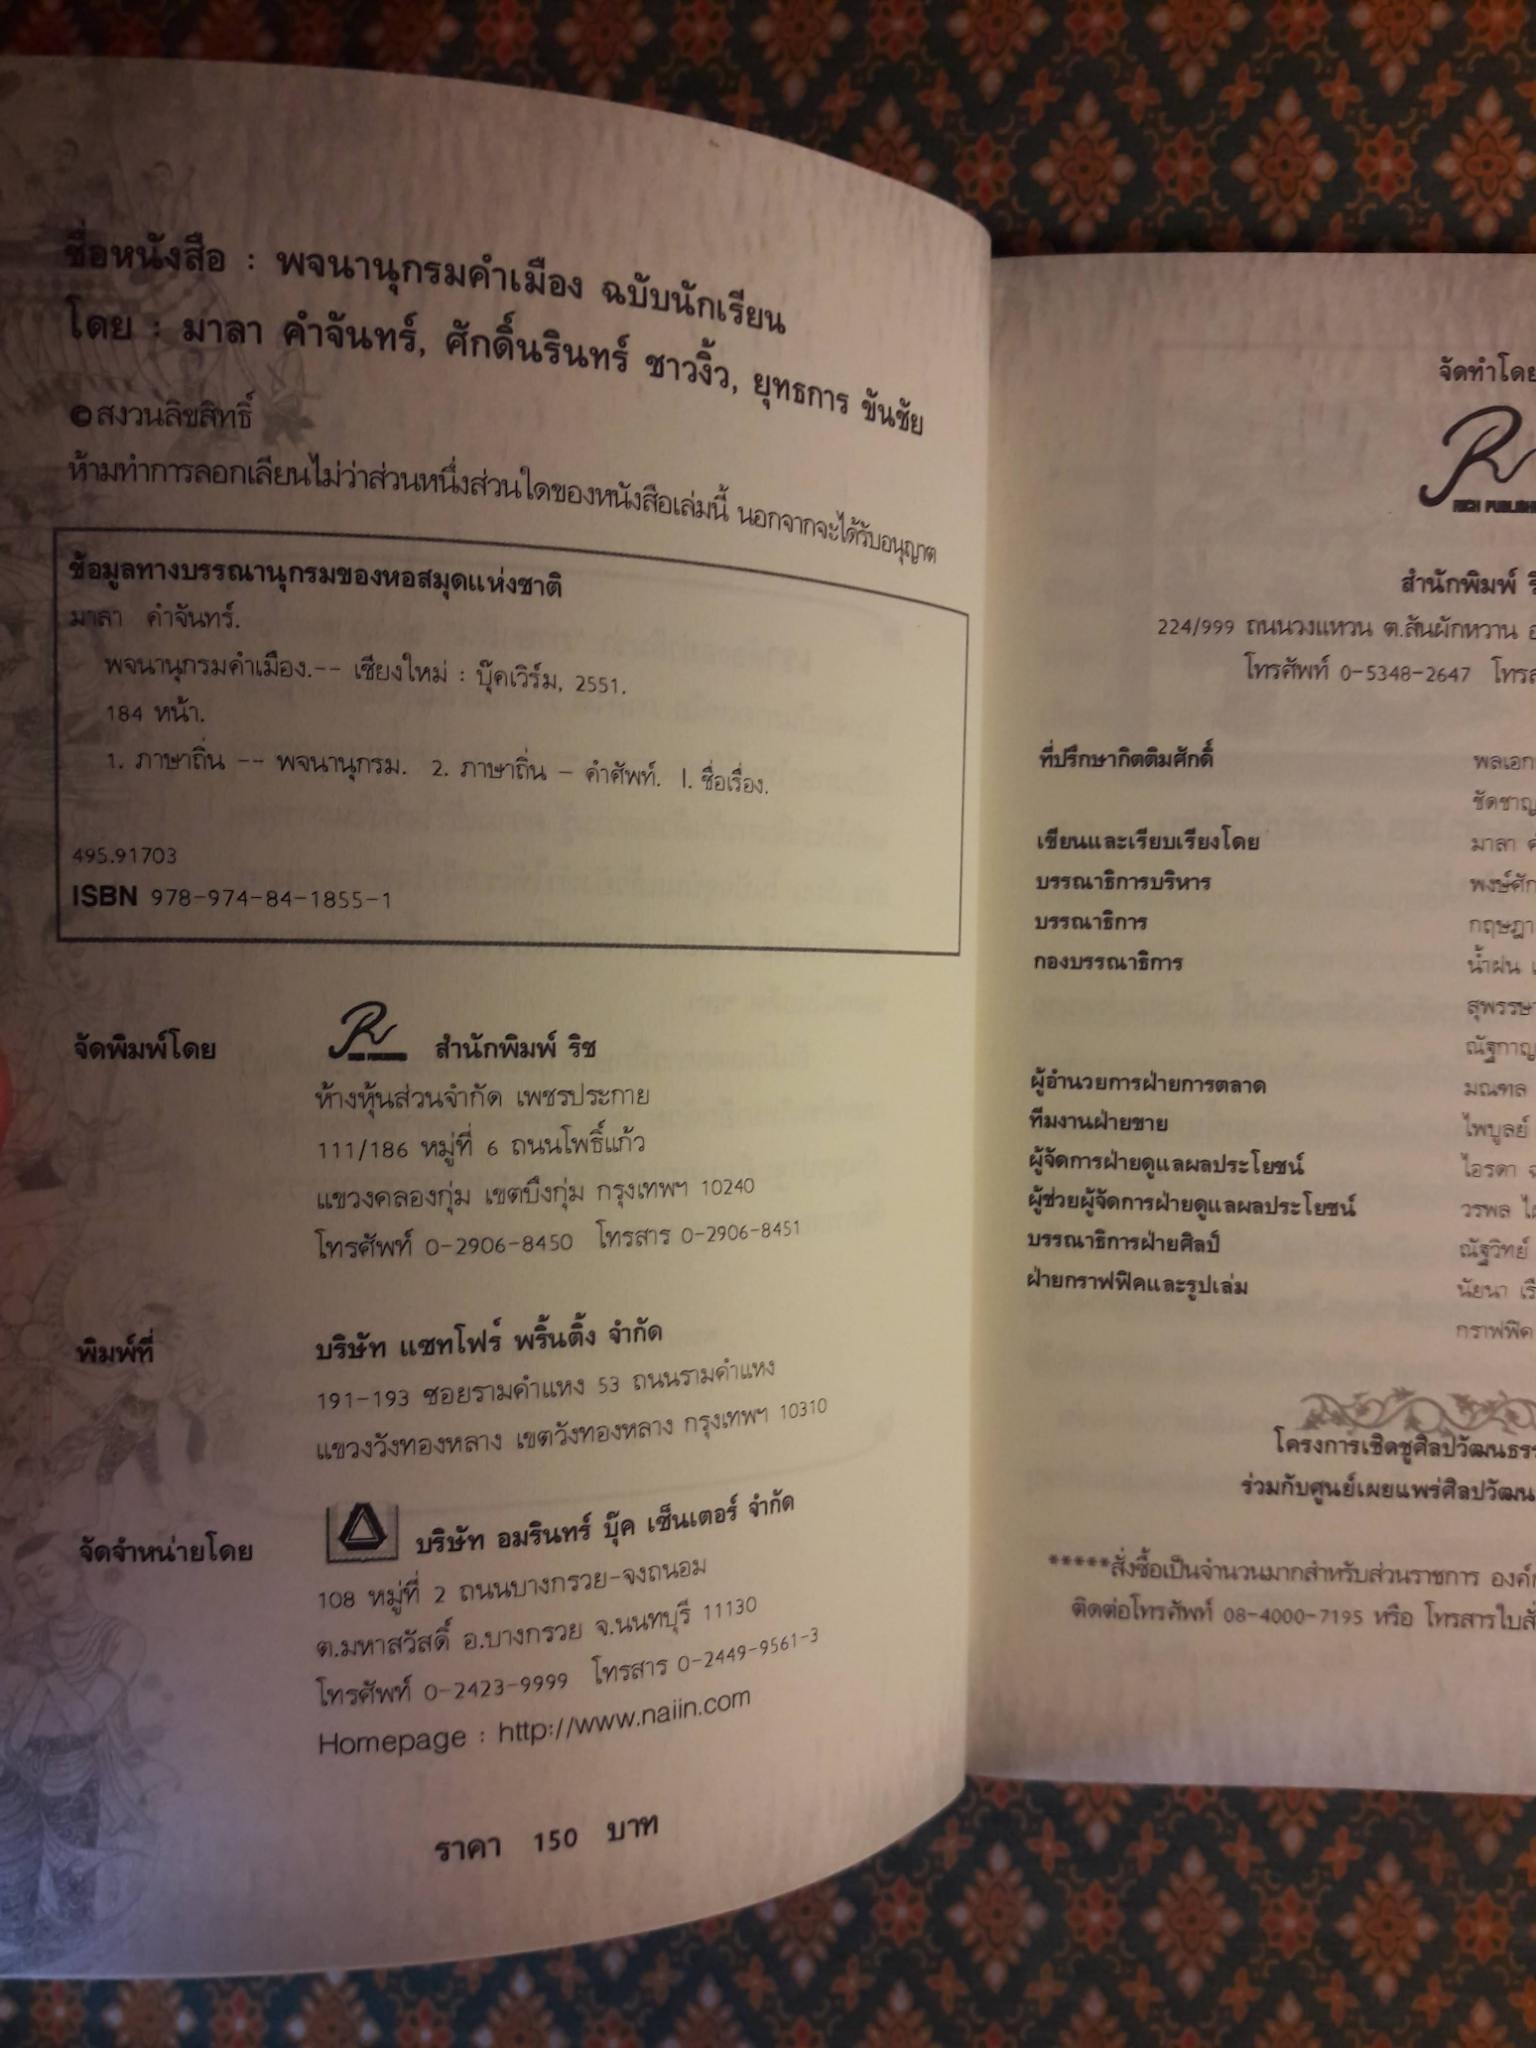 ชื่อหนังสือ : พจนานุกรมคำเมือง ฉบับนักเรียน
โดย : มาลา คำจันทร์, ศักดิ์นรินทร์ ชาวงิ้ว, ยุทธการ ขันชัย
©สงวนลิขสิทธิ์
ห้ามทำการลอกเลียนไม่ว่าส่วนหนึ่งส่วนใดของหนังสือเล่มนี้ นอกจากจะได้รับอนุญาต
ข้อมูลทางบรรณานุกรมของหอสมุดแห่งชาติ
มาลา คำจันทร์.
พจนานุกรมคำเมือง.-- เชียงใหม่ : บุ๊คเวิร์ม, 2551.
184 หน้า.
1. ภาษาถิ่น -- พจนานุกรม. 2. ภาษาถิ่น - คำศัพท์. I. ชื่อเรื่อง.
495.91703
ISBN 978-974-84-1855-1
จัดพิมพ์โดย สำนักพิมพ์ ริช
ห้างหุ้นส่วนจำกัด เพชรประกาย
111/186 หมู่ที่ 6 ถนนโพธิ์แก้ว
แขวงคลองกุ่ม เขตบึงกุ่ม กรุงเทพฯ 10240
โทรศัพท์ 0-2906-8450 โทรสาร 0-2906-8451
พิมพ์ที่ บริษัท แซทโฟร์ พริ้นติ้ง จำกัด
191-193 ซอยรามคำแหง 53 ถนนรามคำแหง
แขวงวังทองหลาง เขตวังทองหลาง กรุงเทพฯ 10310
จัดจำหน่ายโดย บริษัท อมรินทร์ บุ๊ค เซ็นเตอร์ จำกัด
108 หมู่ที่ 2 ถนนบางกรวย-จงถนอม
ต.มหาสวัสดิ์ อ.บางกรวย จ.นนทบุรี 11130
โทรศัพท์ 0-2423-9999 โทรสาร 0-2449-9561-3
Homepage : http://www.naiin.com
ราคา 150 บาท
จัดทำโดย
RICH PUBLISHE
สำนักพิมพ์ ริ
224/999 ถนนวงแหวน ต.สันผักหวาน อ
โทรศัพท์ 0-5348-2647 โทรส
ที่ปรึกษากิตติมศักดิ์ พลเอก
ชัดชาญ
เขียนและเรียบเรียงโดย มาลา ค
บรรณาธิการบริหาร พงษ์ศัก
บรรณาธิการ กฤษฎา
กองบรรณาธิการ น้ำฝน
สุพรรษ
ณัฐกาญ
ผู้อำนวยการฝ่ายการตลาด มณฑล
ทีมงานฝ่ายขาย ไพบูลย์
ผู้จัดการฝ่ายดูแลผลประโยชน์ ไอรดา
ผู้ช่วยผู้จัดการฝ่ายดูแลผลประโยชน์ วรพล
บรรณาธิการฝ่ายศิลป์ ณัฐวิทย์
ฝ่ายกราฟฟิคและรูปเล่ม นัยนา เรื
กราฟฟิค
โครงการเชิดชูศิลปวัฒนธรร
ร่วมกับศูนย์เผยแพร่ศิลปวัฒน
*****สั่งซื้อเป็นจำนวนมากสำหรับส่วนราชการ องค์ก
ติดต่อโทรศัพท์ 08-4000-7195 หรือ โทรสารใบสั่